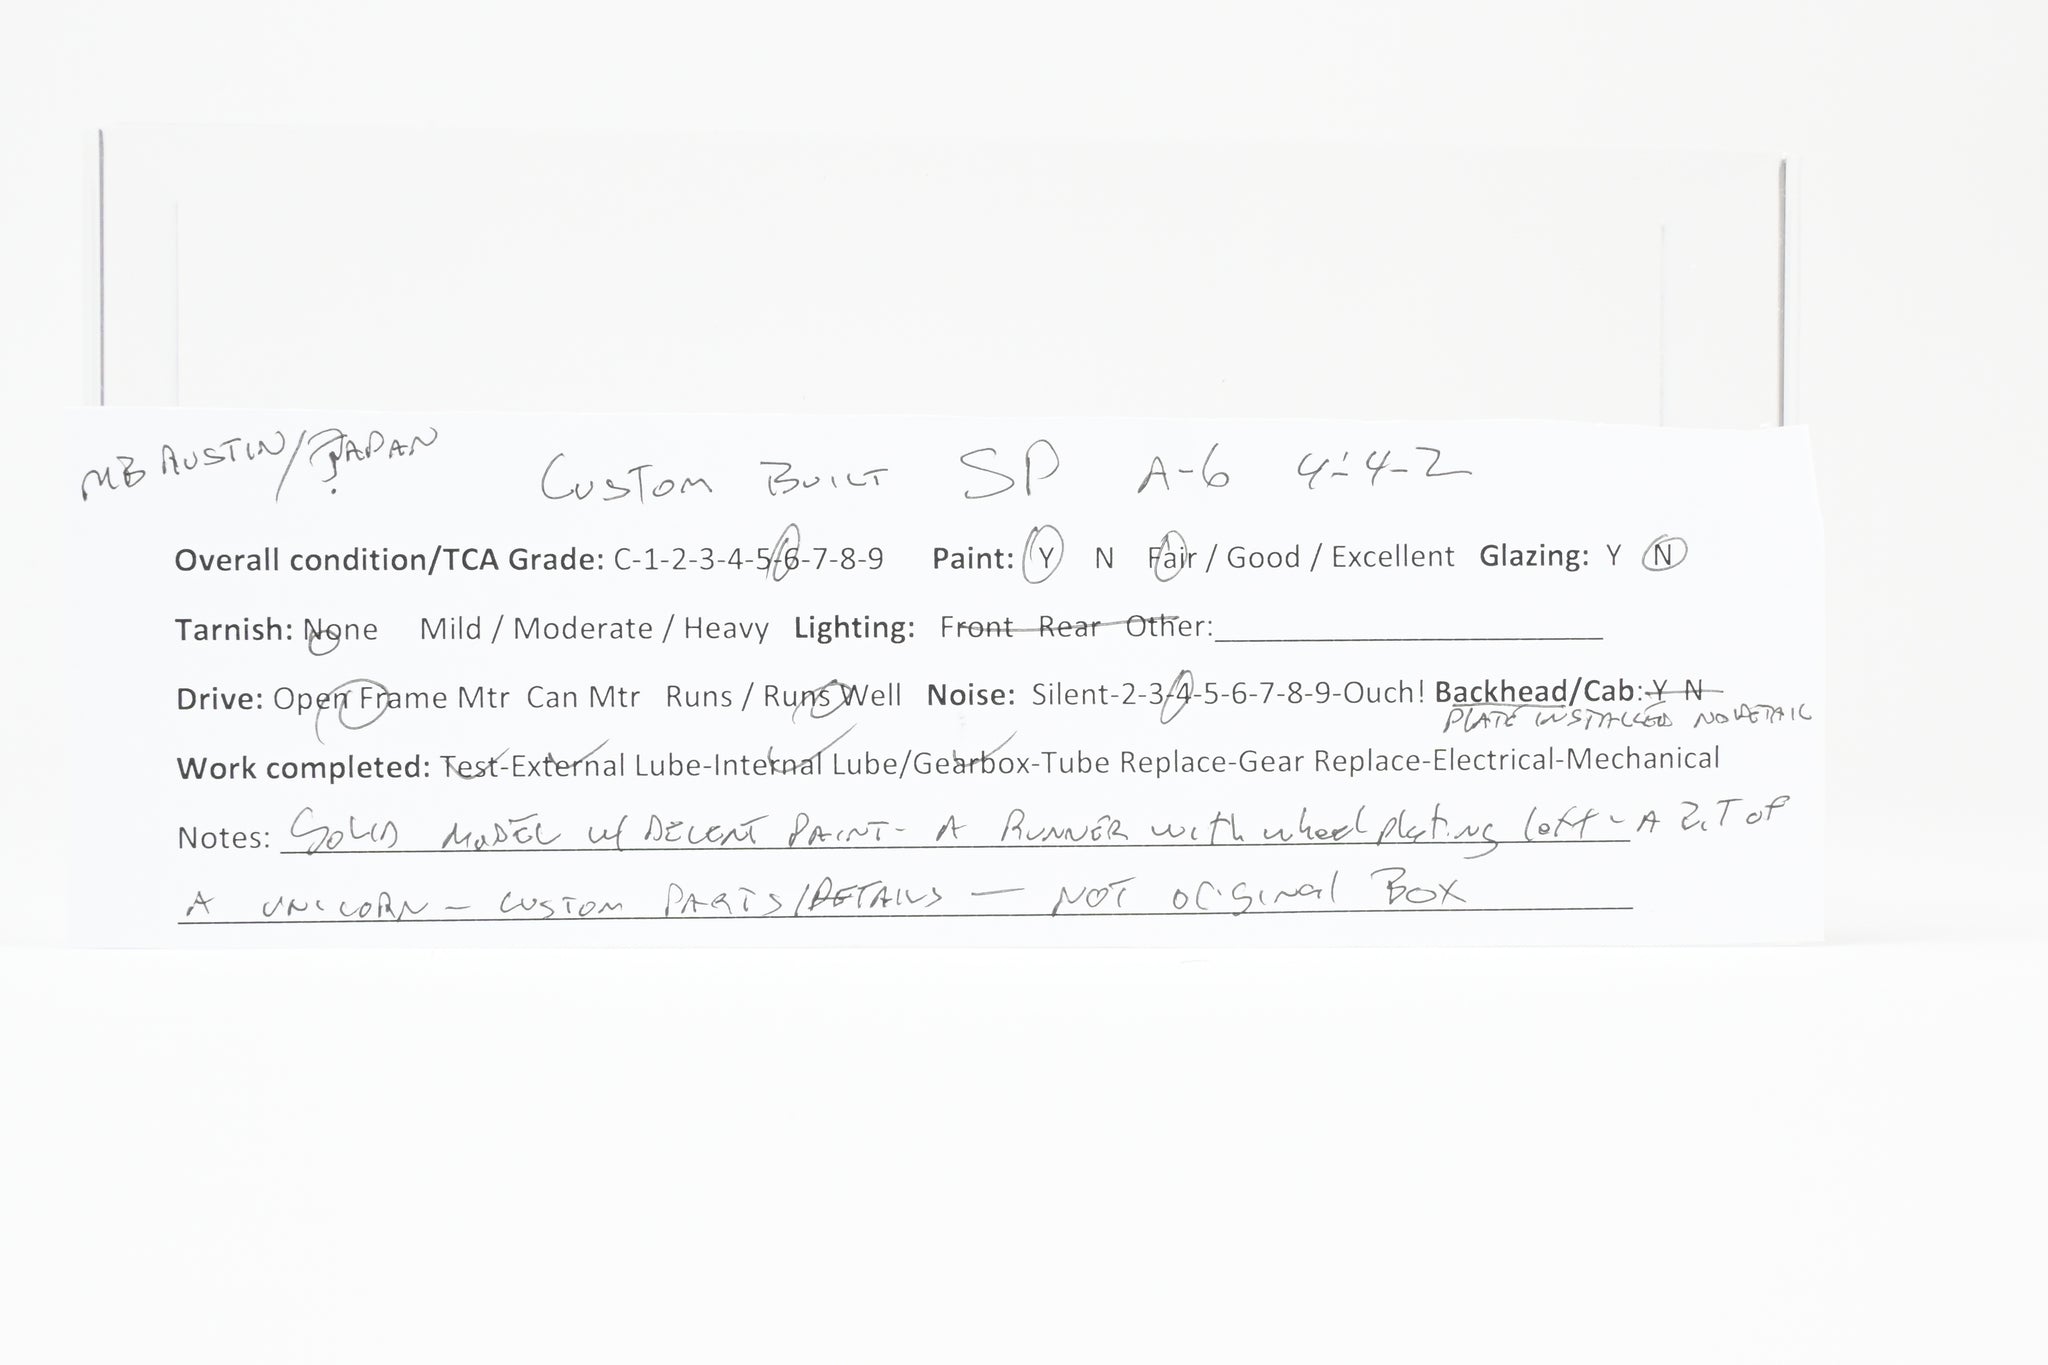 MB AUSTIN/JAPAN ?
CUSTOM BUILT SP A-6 4-4-2
Overall condition/TCA Grade: C-1-2-3-4-5-6-7-8-9 Paint: Y N Fair / Good / Excellent Glazing: Y N
Tarnish: None Mild / Moderate / Heavy Lighting: Front Rear Other:
Drive: Open Frame Mtr Can Mtr Runs / Runs Well Noise: Silent-2-3-4-5-6-7-8-9-Ouch! Backhead/Cab: Y N
PLATE INSTALLED NO DETAIL
Work completed: Test-External Lube-Internal Lube/Gearbox-Tube Replace-Gear Replace-Electrical-Mechanical
Notes: SOLID MODEL w/ DECENT PAINT- A RUNNER with wheel plating left - A of
A UNICORN - CUSTOM PARTS/DETAILS — NOT ORIGINAL BOX